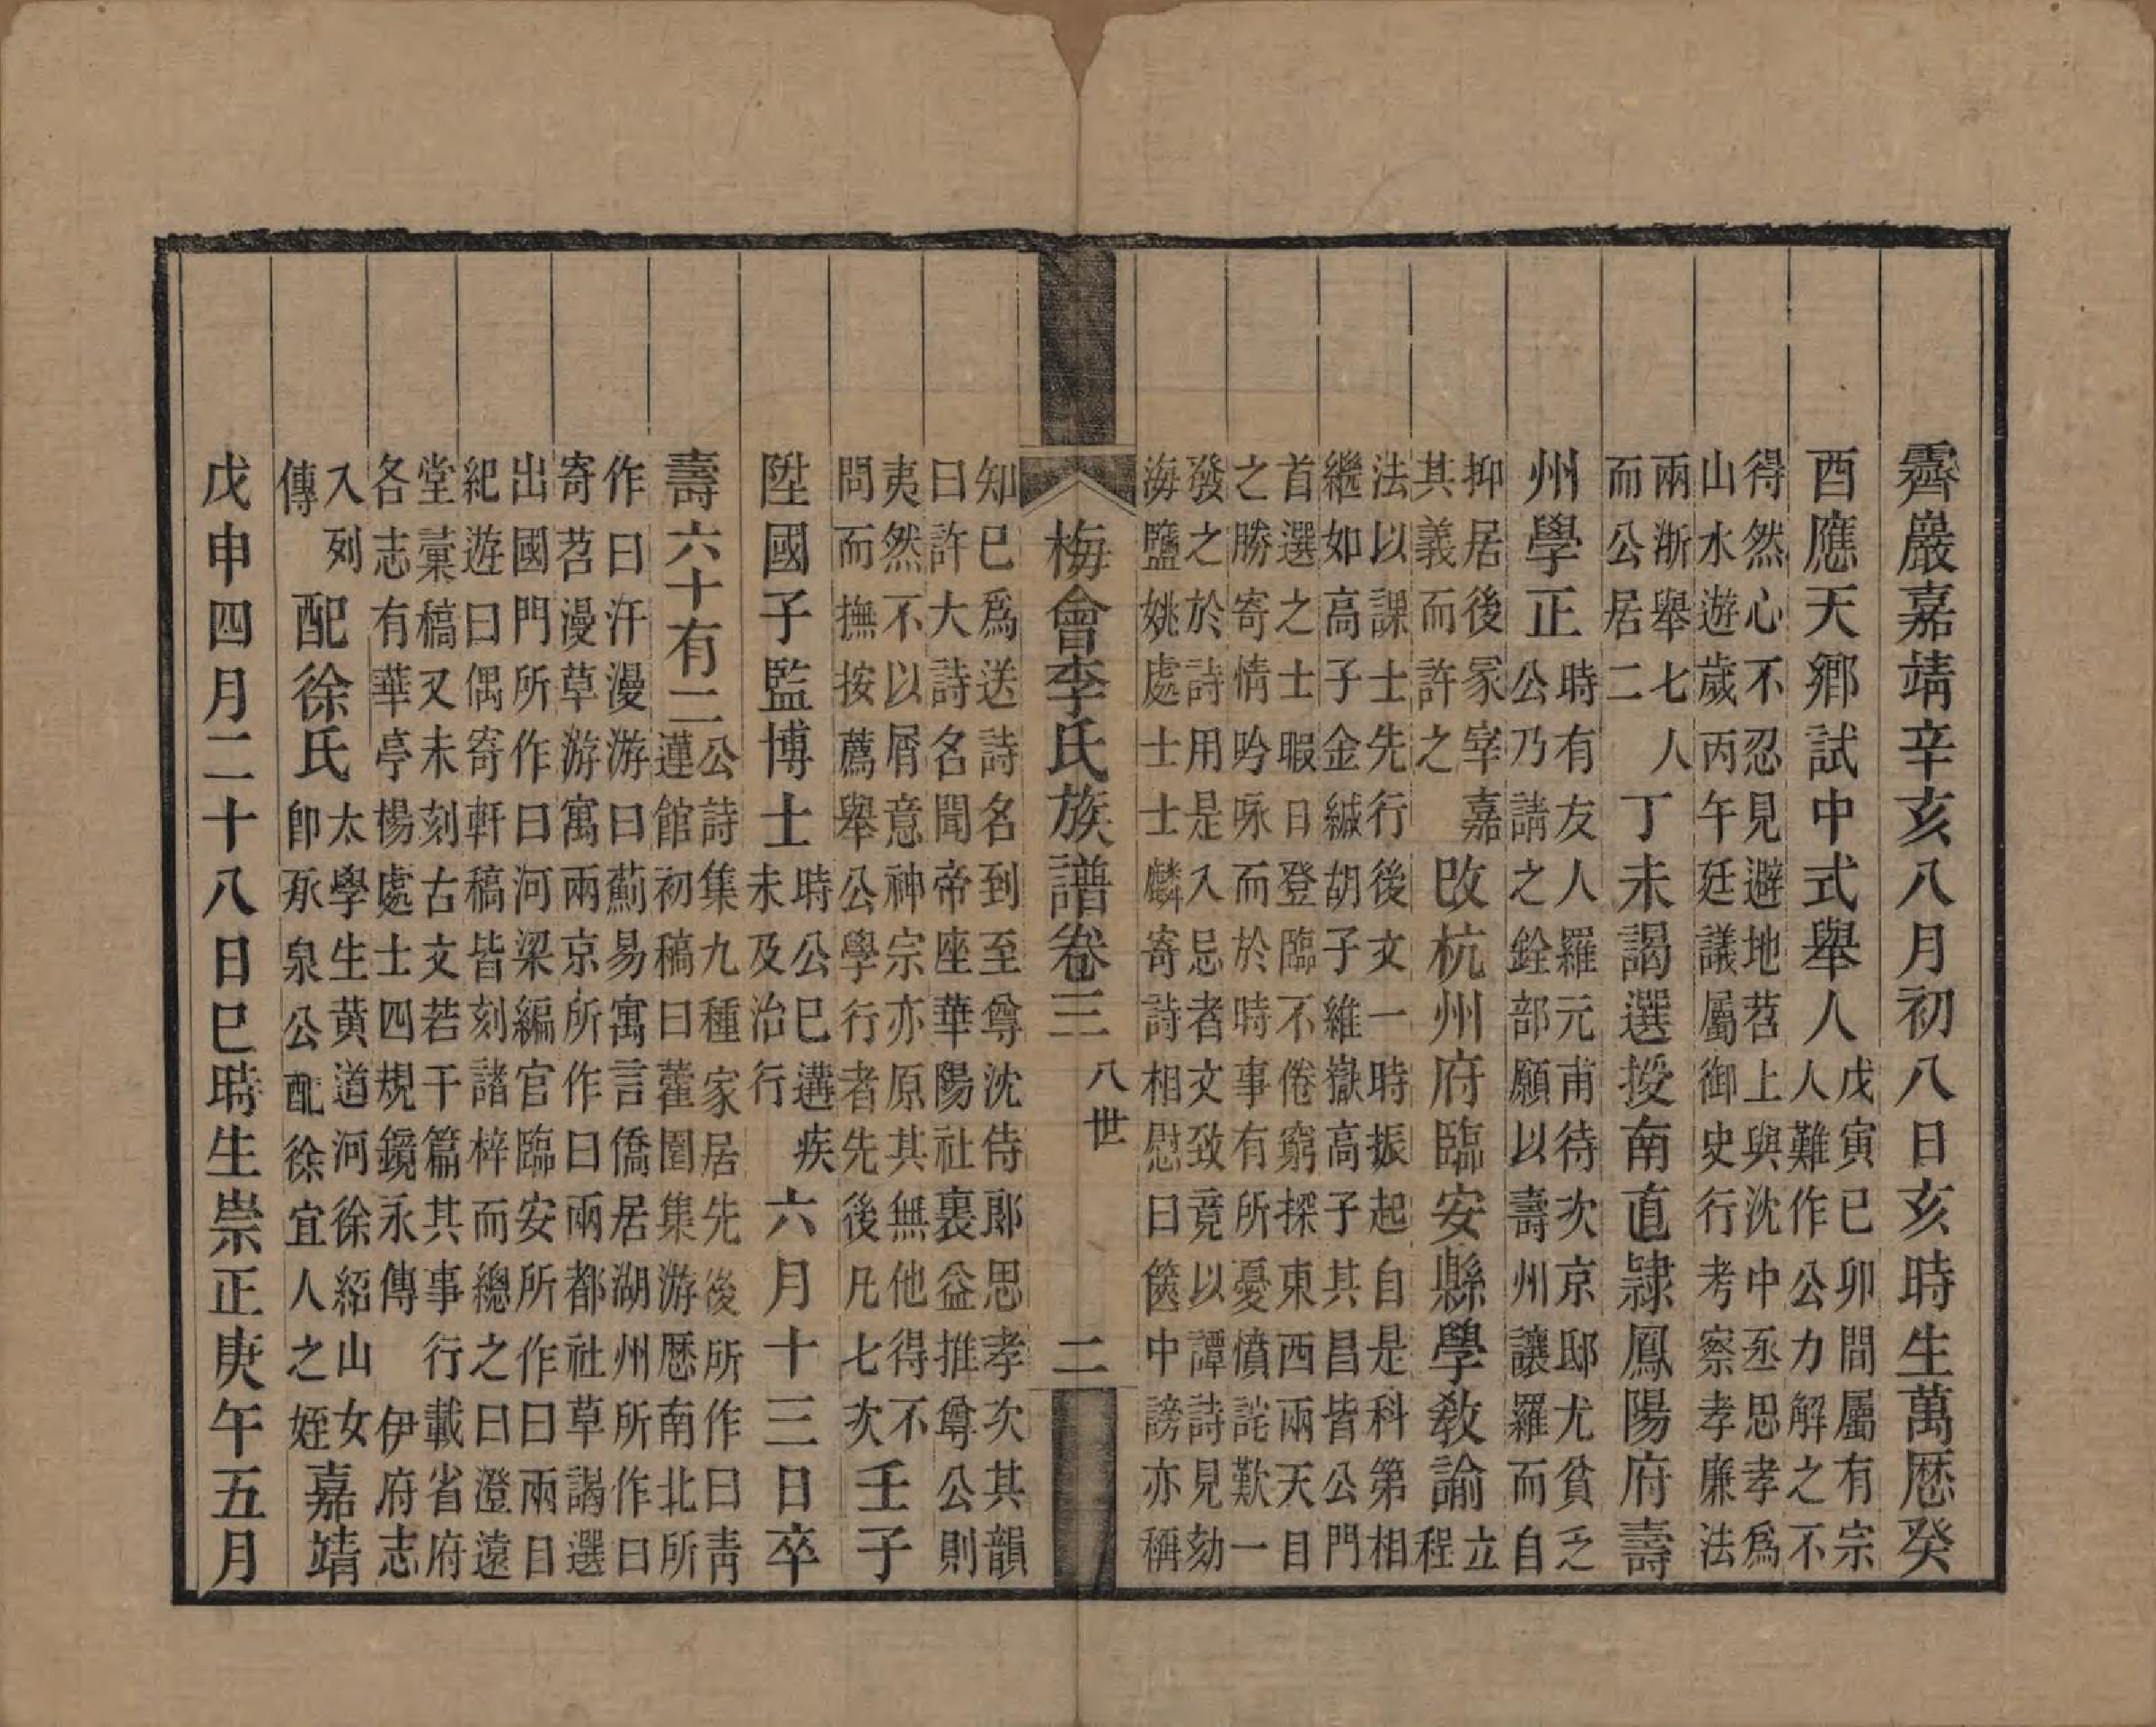 霽巖嘉靖辛亥八月初八日亥時生萬厯癸
酉應天鄉試中式舉人
戊寅己卯間屬有宗
人難作公力解之不
得然心不忍見避地苕上與沈中丞思孝爲
山水遊歲丙午廷議屬御史行考察孝廉法
兩淅舉七人
而公居二
丁未謁選授南直隷鳳陽府壽
州學正
時有友人羅元甫待次京邸尤貧乏
公乃請之銓部願以壽州讓羅而自
抑居後冢宰嘉
其義而許之
改杭州府臨安縣學敎諭
立
程
法以課士先行後文一時振起自是科第相
繼如高子金緘胡子維嶽高子其昌皆公門
首選之士暇日登臨不倦窮探東西兩天目
之勝寄情吟咏而於時事有所憂憤詫歎一
發之於詩用是入忌者文致竟以譚詩見劾
海鹽姚處士士麟寄詩相慰曰篋中謗亦稱
梅會李氏族譜卷三
八世
二
知已爲送詩名到至尊沈侍郎思孝次其韻
曰許大詩名聞帝座華陽社裏益推尊公則
夷然不以屑意神宗亦原其無他得不
問而撫按薦舉公學行者先後凡七次
壬子
陞國子監博士
時公巳遘疾
未及治行
六月十三日卒
壽六十有二
公詩集九種家居先後所作曰靑
蓮館初稿曰藿園集游厯南北所
作曰汗漫游曰薊易寓言僑居湖州所作曰
寄苕漫草游寓兩京所作曰兩都社草謁選
出國門所作曰河梁編官臨安所作曰兩目
紀遊曰偶寄軒稿皆刻諸梓而總之曰澄遠
堂彙稿又未刻古文若干篇其事行載省府
各志有華亭楊處士四規鏡永傳伊府志
入列
傳
配徐氏
太學生黃道河徐紹山女
卽承泉公配徐宜人之姪
嘉靖
戊申四月二十八日巳時生崇正庚午五月